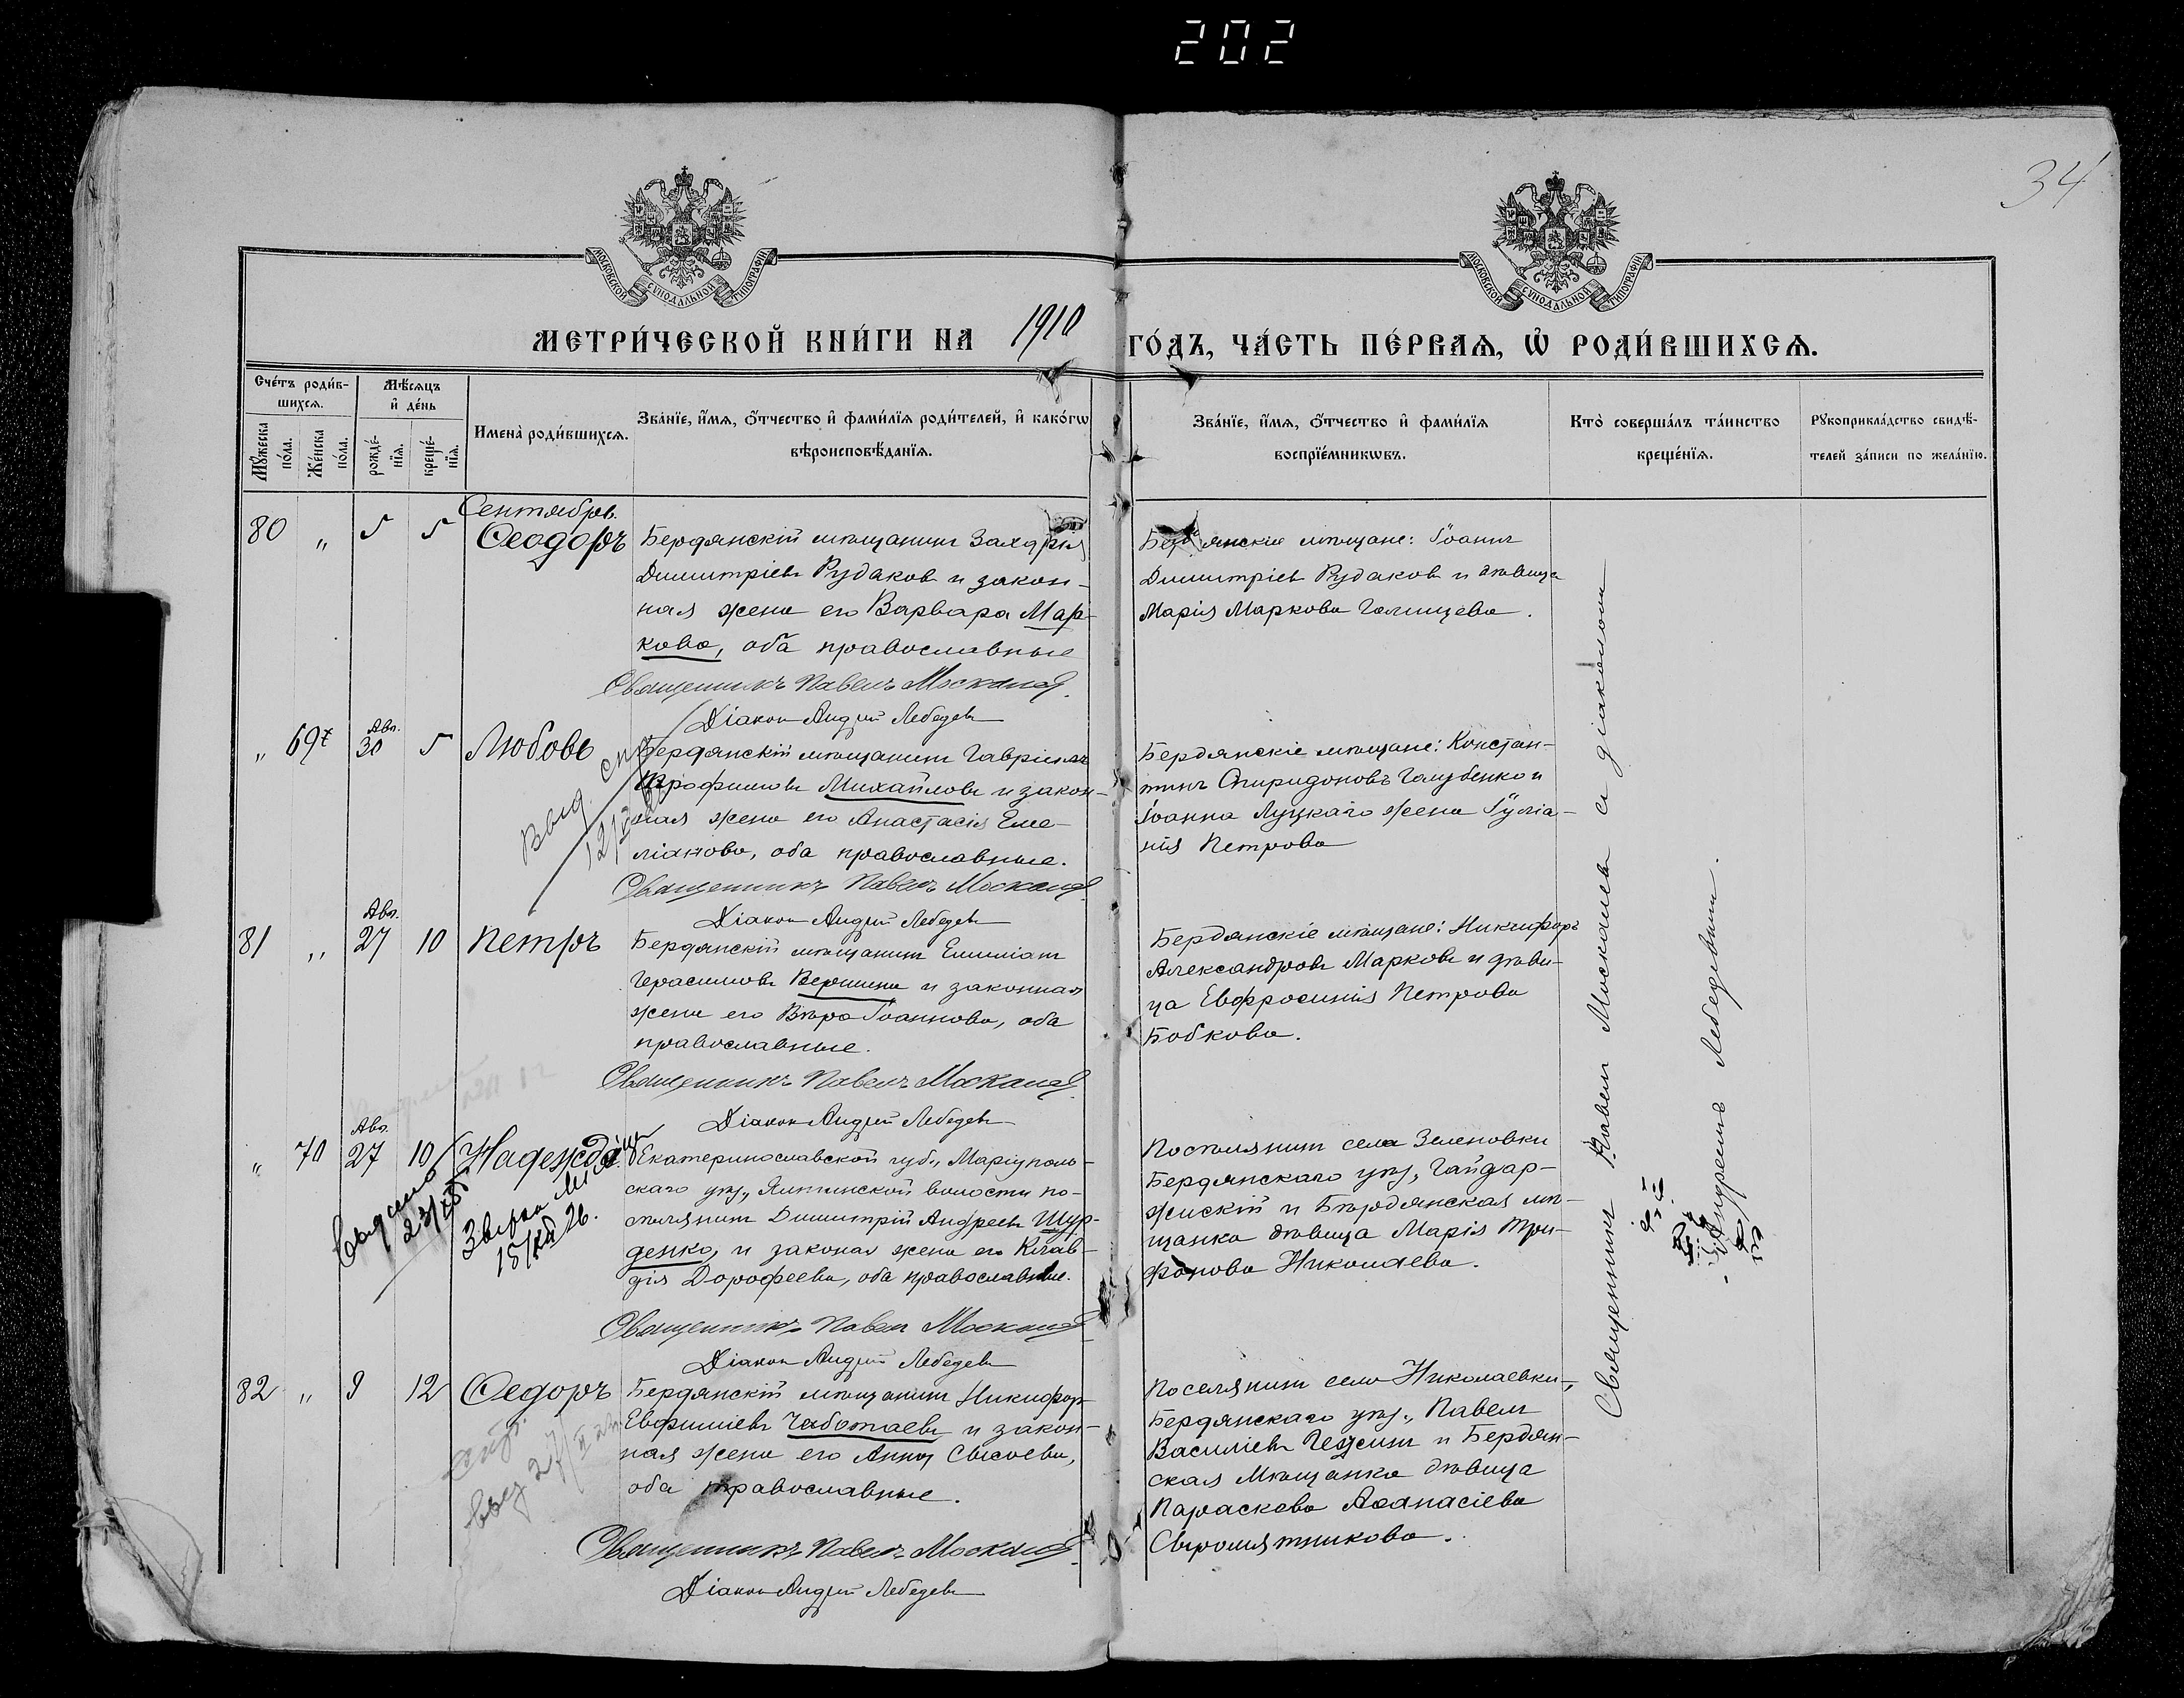 202
34
МОСКОВСКОЙ СѴНОДАЛЬНОЙ ТИПОГРАФІИ
МОСКОВСКОЙ СѴНОДАЛЬНОЙ ТИПОГРАФІИ
МЕТРИ́ЧЕСКОЙ КНИ́ГИ НА 1910 ГО́ДЪ, ЧА́СТЬ ПЕ́РВАѦ, Ѡ҆ РОДИ́ВШИХСѦ.
Сче́тъ роди́в-
шихсѧ.
Мꙋ́жеска по́ла.
Же́нска по́ла.
Мѣ́сѧцъ
и҆ де́нь
рожде́-
нїѧ.
креще́-
нїѧ.
И҆мена̀ роди́вшихсѧ.
Зва́нїе, и҆́мѧ, ѻ҆́тчество и҆ фами́лїѧ роди́телей, и҆ како́гѡ
вѣроисповѣ́данїѧ.
Зва́нїе, и҆́мѧ, ѻ҆́тчество и҆ фами́лїѧ
воспрїе́мникѡвъ.
Кто̀ соверша́лъ та́инство
креще́нїѧ.
Рꙋкоприкла́дство свидѣ́-
телей за́писи по жела́нїю.
Сентябрь.
80 " 5 5 Ѳеодоръ
Бердянскій мѣщанинъ Захарія
Димитріевъ Рудаковъ и закон-
ная жена его Варвара Мар-
кова, оба православные
Священникъ Павелъ Москалевъ
Діаконъ Андрей Лебедевъ
Бердянскіе мѣщане: Іоаннъ
Димитріевъ Рудаковъ и дѣвица
Марія Маркова Голищева.
" 69 Авг. 30 5 Любовь
Бердянскій мѣщанинъ Гавріилъ
Трофимовъ Михайловъ и закон-
ная жена его Анастасія Еме-
ліанова, оба православные.
Священникъ Павелъ Москалевъ
Діаконъ Андрей Лебедевъ
Бердянскіе мѣщане: Констан-
тинъ Спиридоновъ Голубенко и
Іоанна Луцкаго жена Іуліа-
нія Петрова
81 " Авг. 27 10 Петръ
Бердянскій мѣщанинъ Емиліанъ
Герасимовъ Вершина и законная
жена его Вѣра Іоаннова, оба
православные.
Священникъ Павелъ Москалевъ
Діаконъ Андрей Лебедевъ
Бердянскіе мѣщане: Никифоръ
Александровъ Марковъ и дѣви-
ца Евфросинія Петрова
Бобкова.
" 70 Авг. 27 10 Надежда
Екатеринославской губ., Маріуполь-
скаго уѣз., Ялтинской волости по-
селянинъ Димитрій Андреевъ Шур-
денко, и законая жена его Клав-
дія Дорофеева, оба православные.
Священникъ Павелъ Москалевъ
Діаконъ Андрей Лебедевъ
Поселянинъ села Зеленовки
Бердянскаго уѣз, Гайдар-
жискій и Бердянская мѣ-
щанка дѣвица Марія Три-
фонова Николаева.
82 " 9 12 Ѳедоръ
Бердянскій мѣщанинъ Никифоръ
Евфиміевъ Чаботаевъ и закон-
ная жена его Анна Сысоева,
оба православные.
Священникъ Павелъ Москалевъ
Діаконъ Андрей Лебедевъ
Поселянинъ села Николаевки,
Бердянскаго уѣз., Павелъ
Василіевъ и Бердян-
ская мѣщанка дѣвица
Параскева Аѳанасіева
Сыромятникова.
Священникъ Павелъ Москалевъ съ діакономъ
Андреемъ Лебедевымъ.